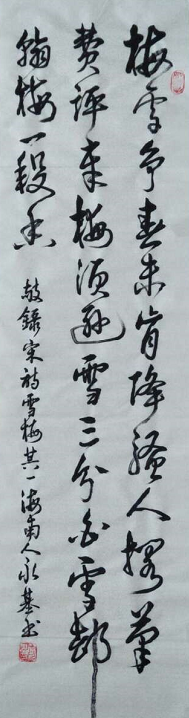 梅雪争春未肯降骚人搁笔
费评章梅须逊雪三分白雪却
输梅一段香
敬录宋诗雪梅其一海南人永基书